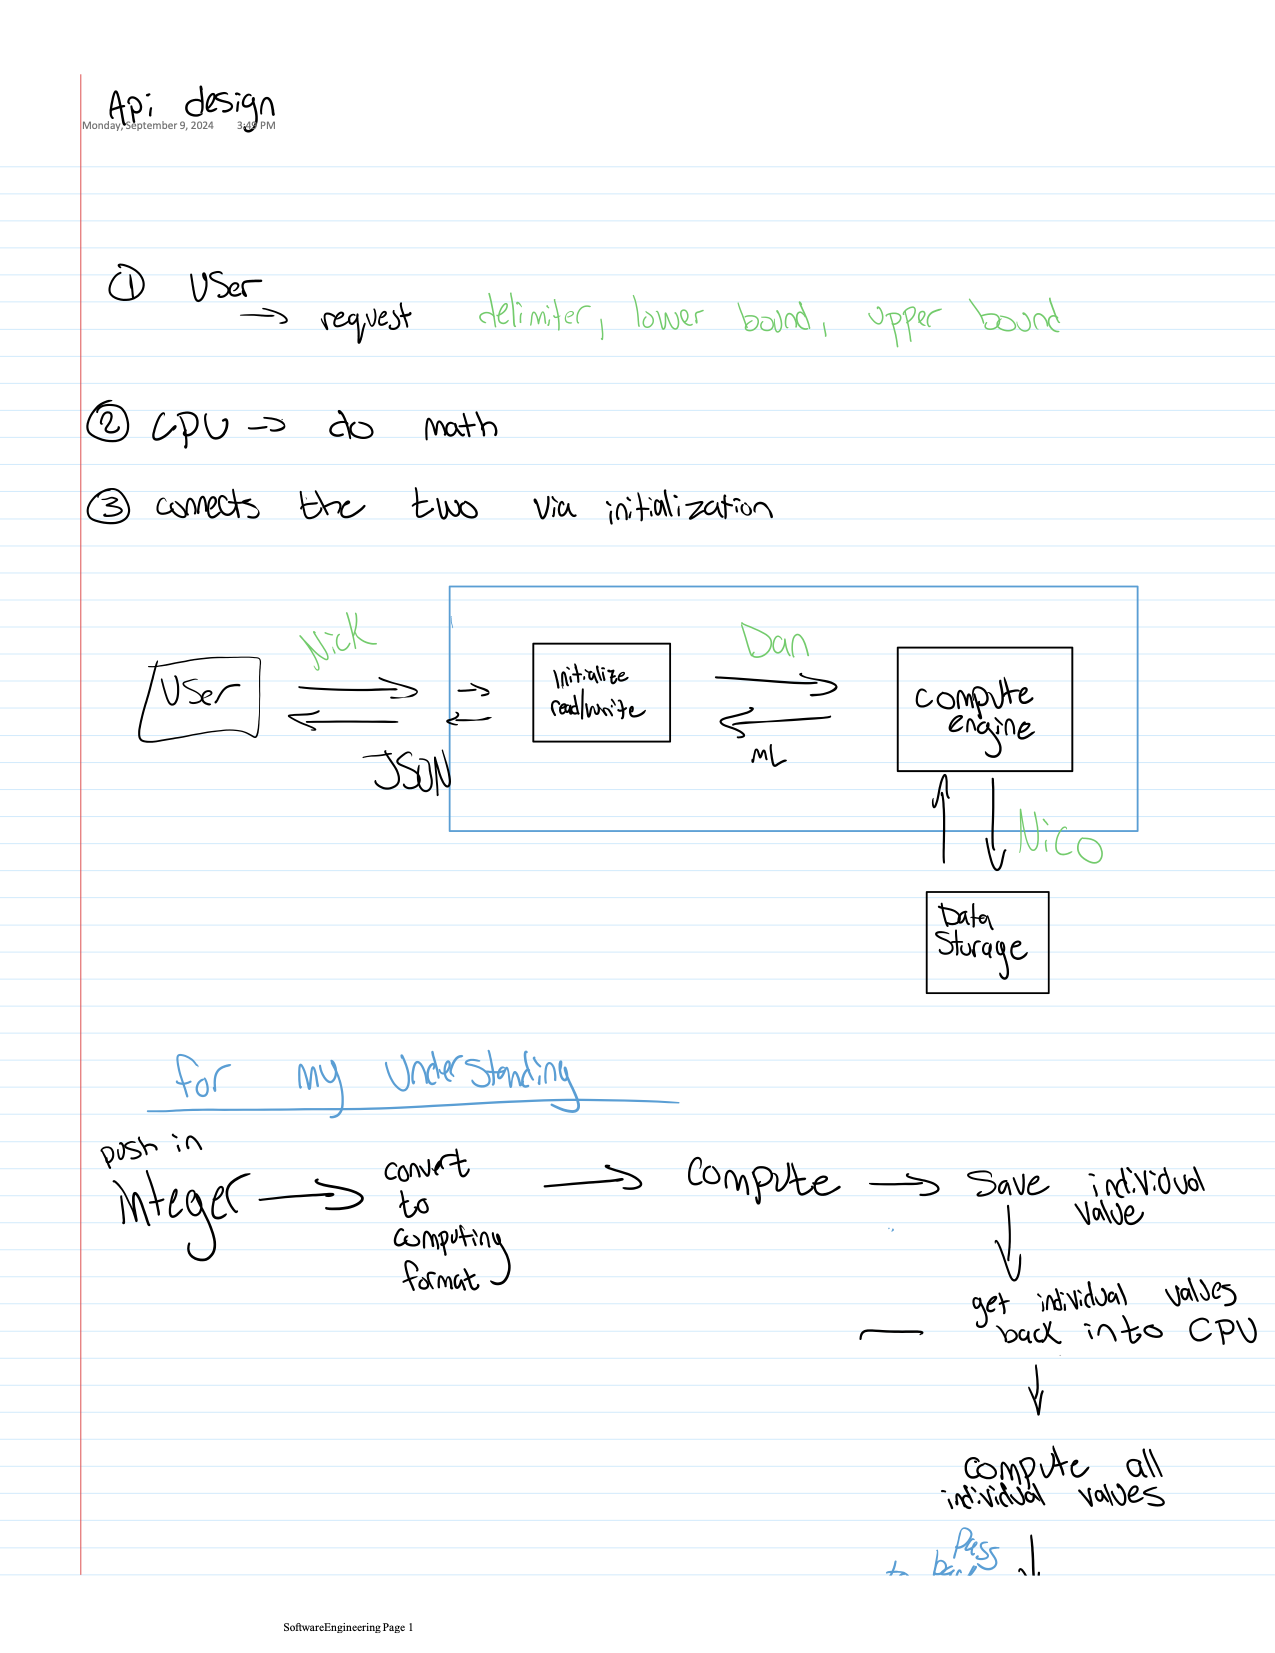 Api design
Monday, September 9, 2024 3:49 PM
① User
→ request delimiter, lower bound, upper bound
② CPU → do math
③ connects the two via initialization
Nick
Dan
User
Initialize
read/write
compute
engine
JSON
ML
Nico
Data
Storage
for my understanding
push in
integer
convert
to
computing
format
compute
Save individual
value
get individual values
back into CPU
compute all
individual values
Pass
to
SoftwareEngineering Page 1